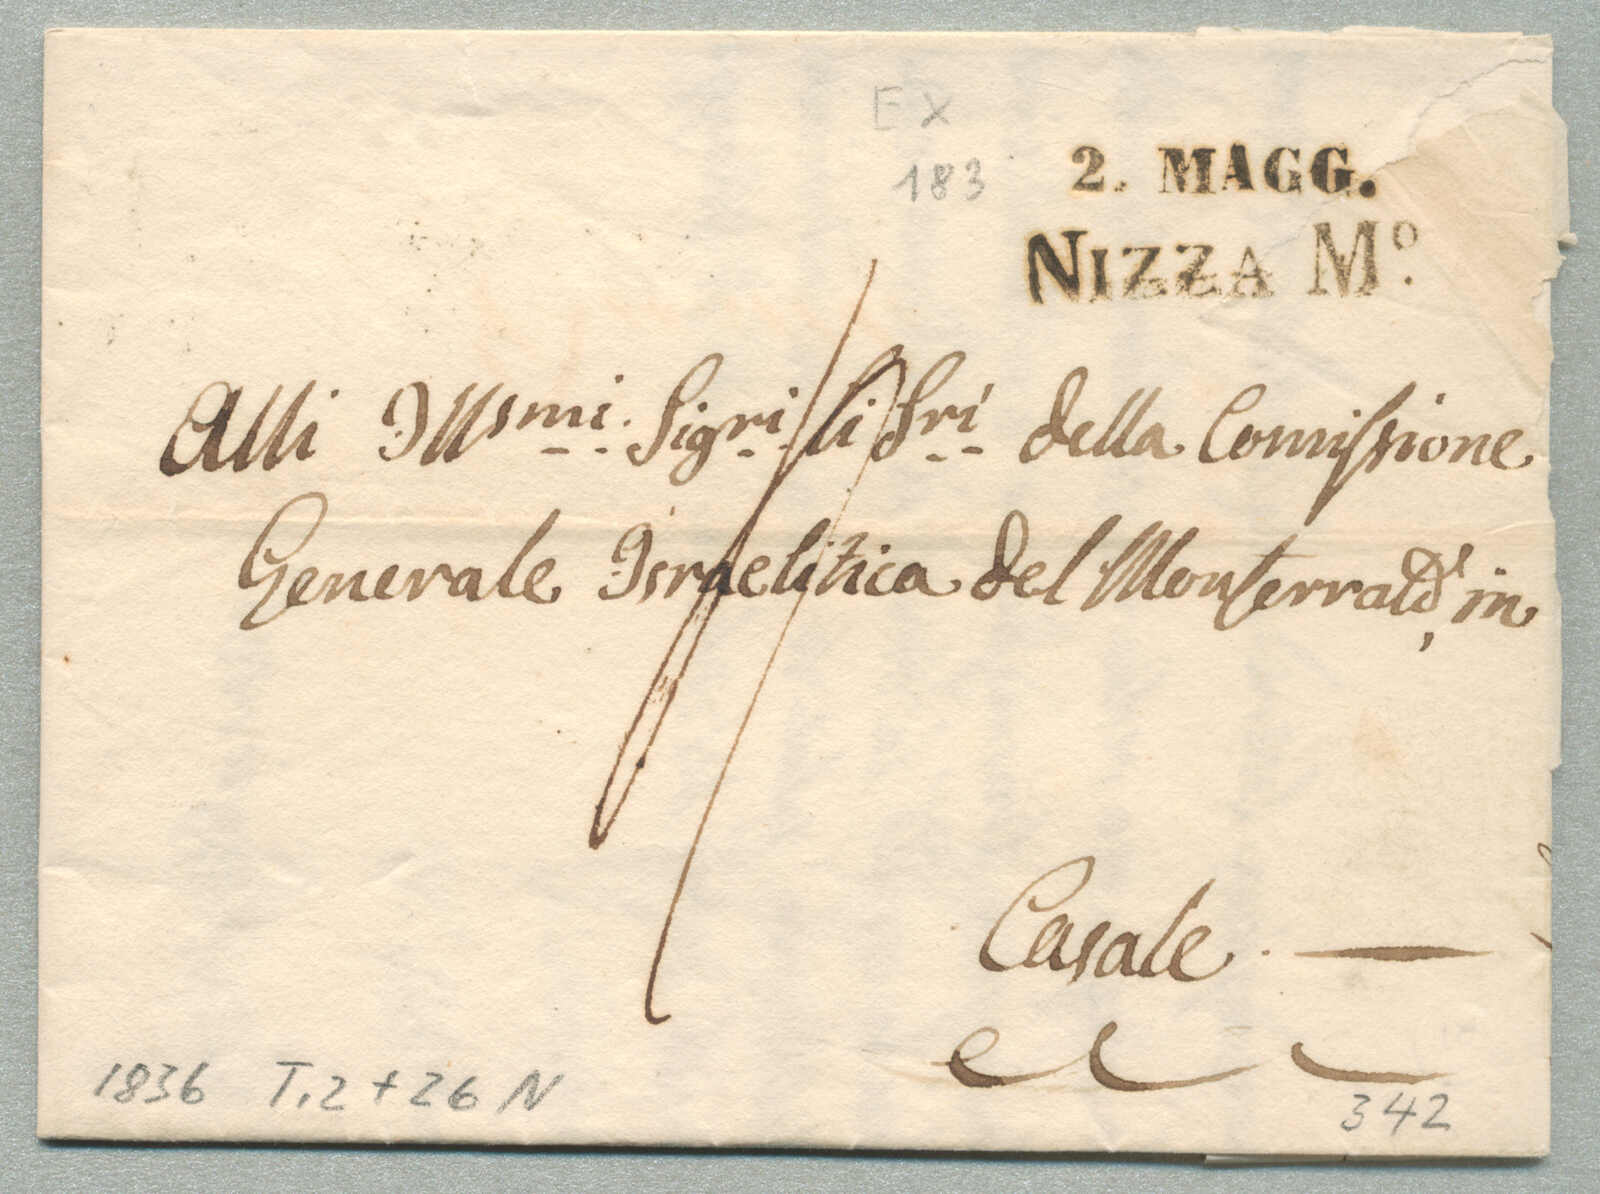 EX
183
2. MAGG.
NIZZA Mº.
Alli Illsmi. Sigri li Sri della Comissione
Generale Israelitica del Monferrato, in
Casale. —
1836 T.2 + 26 N
342